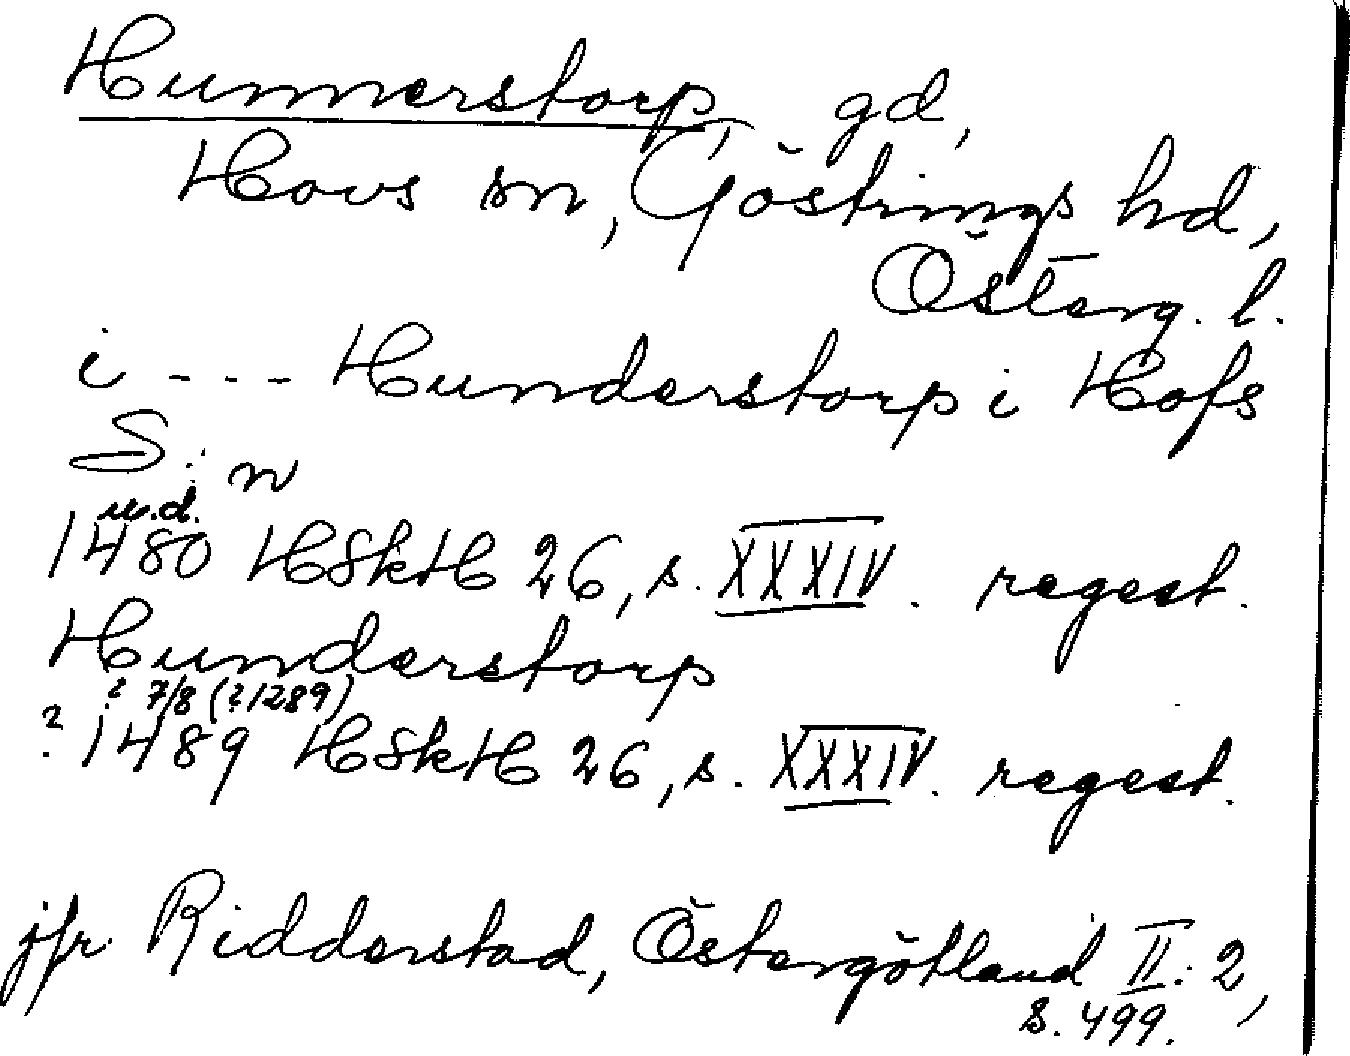 Hunnerstorp, gd,
Hovs sn, Göstrings hd,
Österg. l.
i - - - Hunderstorp i Hofs
S:n
u.d.
1480 HSkH 26, s. XXXIV. regest.
Hunderstorp
? 7/8 (?1289)
? 1489 HSkH 26, s. XXXIV. regest.
jfr Ridderstad, Östergötland II: 2,
s. 499.